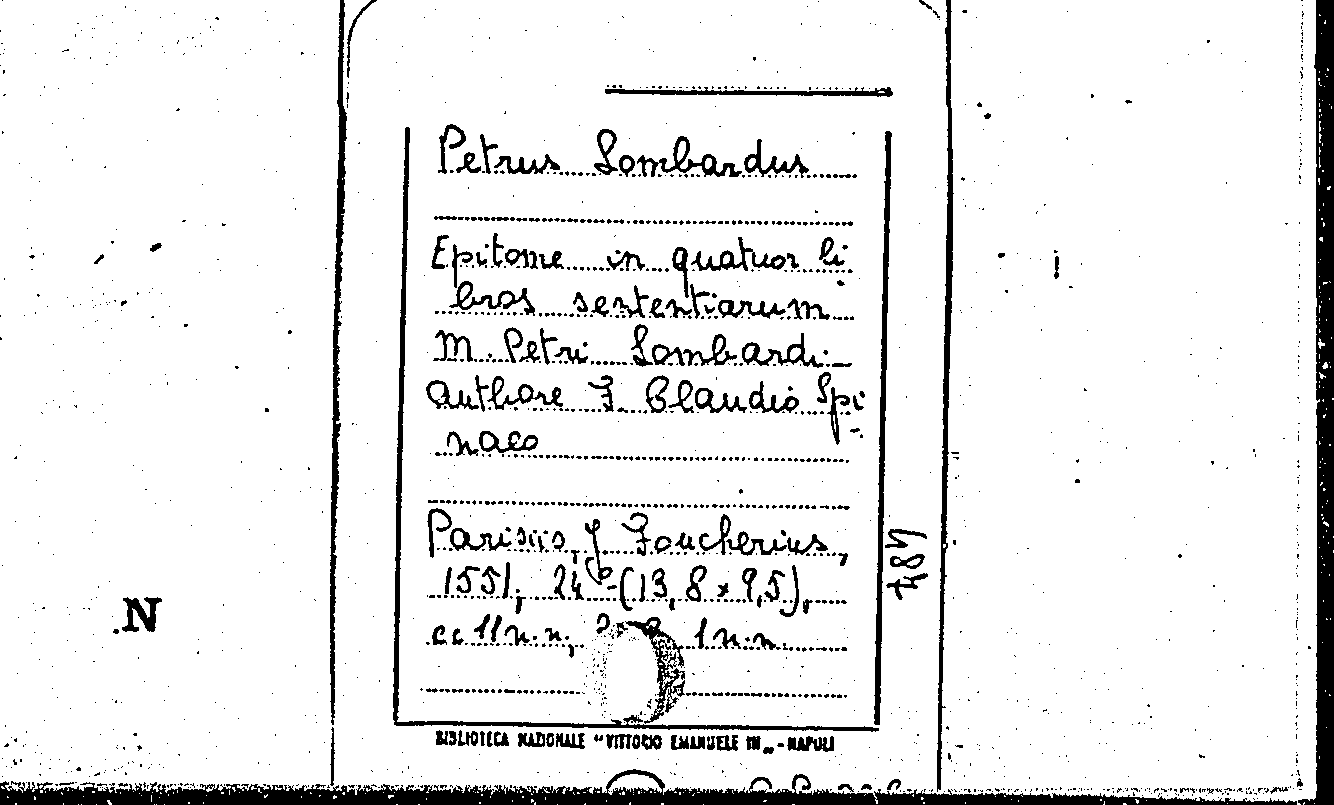 Petrus Lombardus
Epitome in quatuor li
bros sententiarum
M. Petri Lombardi _
authore F. Claudio Spi
naeo
Parisiis, J Foucherius,
1551, 24° (13,8 x 9,5),
cc 11 n.n., 1 n.n.
487
N
BIBLIOTECA NAZIONALE "VITTORIO EMANUELE III„ - NAPOLI